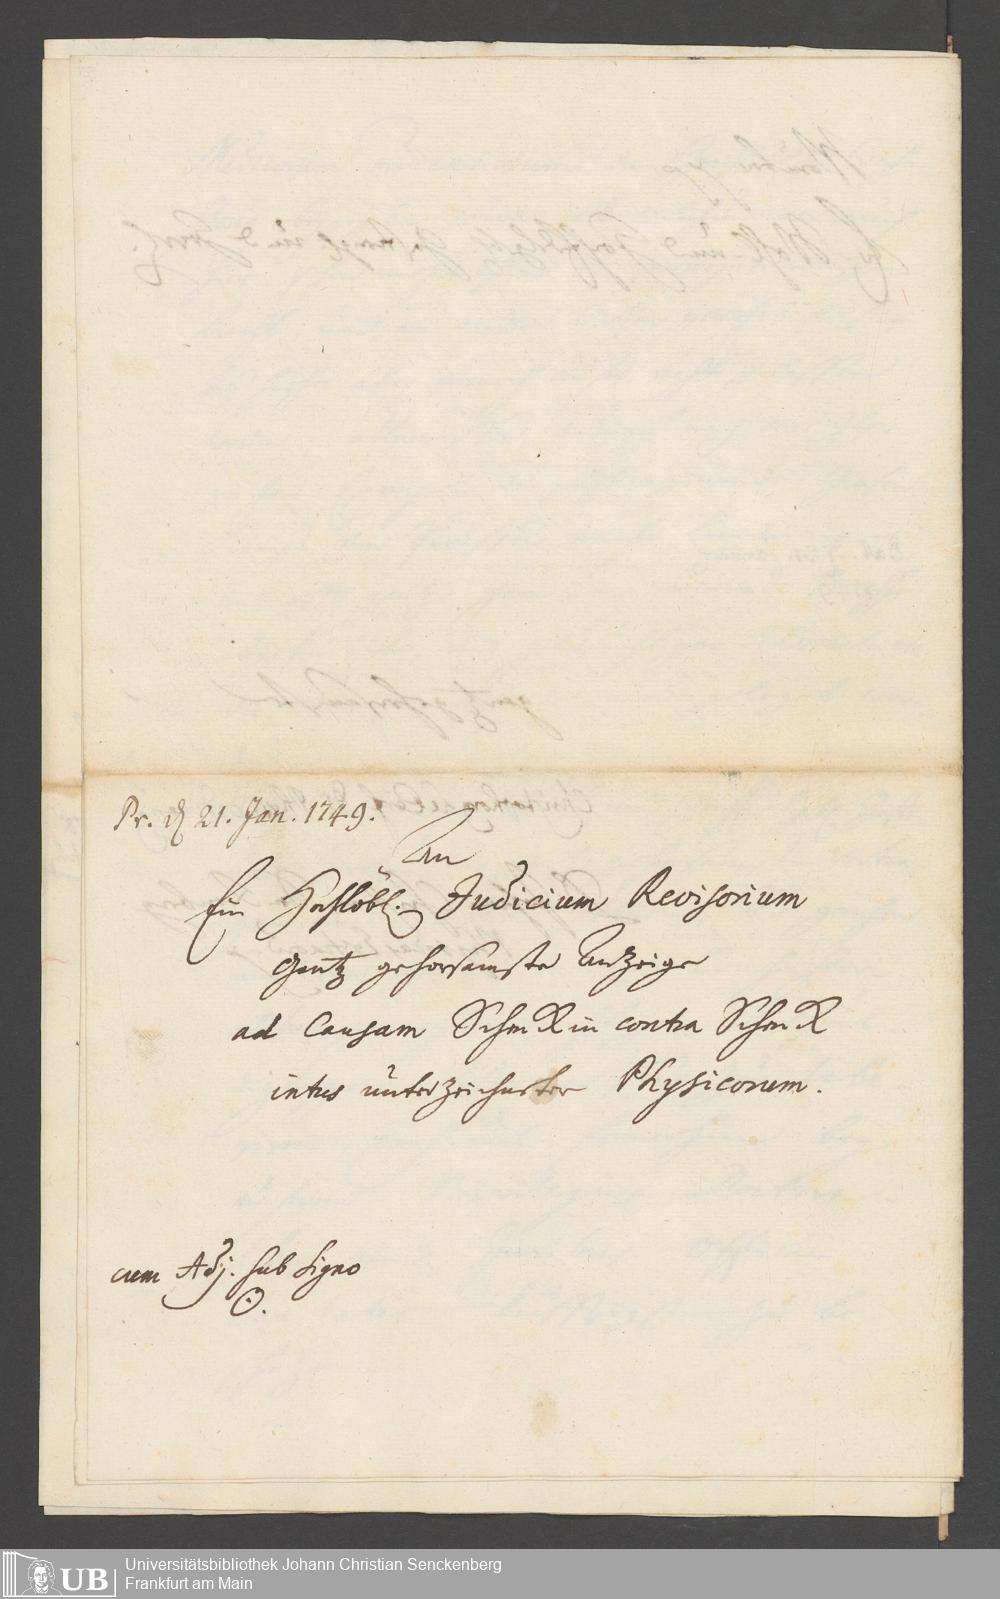 Pr. d 21. Jan. 1749.
An
Ein Hochlöbl. Judicium Revisorium
gantz gehorsamste Anzeige
ad Causam Schenckin contra Schenck
intus unterzeichneter Physicorum.
cum Adj. sub Signo
⊙.
Universitätsbibliothek Johann Christian Senckenberg
Frankfurt am Main
UB